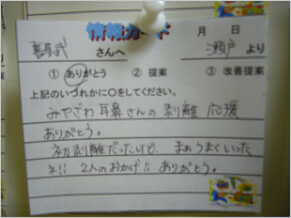 情報カード
月 日
さんへ 瀬戸 より
① ありがとう ② 提案 ③ 改善提案
上記のいづれかに〇をしてください。
みやざわ耳鼻さんの剥離 応援
ありがとう。
初剥離だったけど、まぁうまくいった
ネ!! 2人のおかげ!! ありがとう。